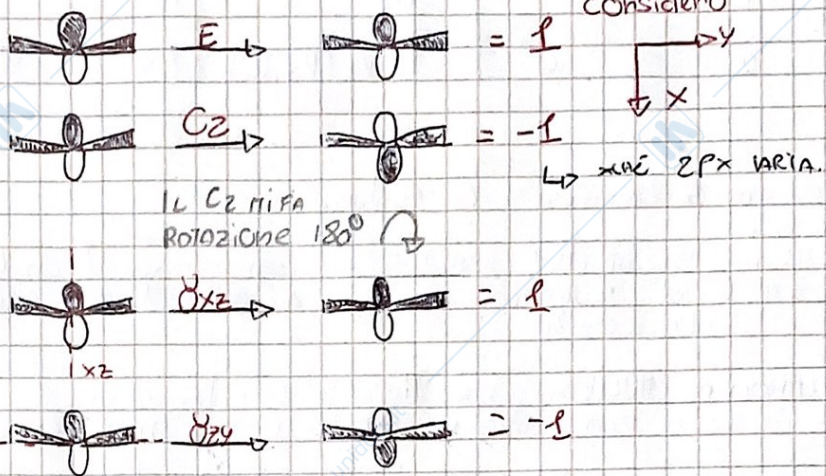 considero
E = 1
y
x
C2 = -1
↳ xké 2px VARIA.
IL C2 MI FA
ROTAZIONE 180°
σxz = 1
xz
σzy = -1